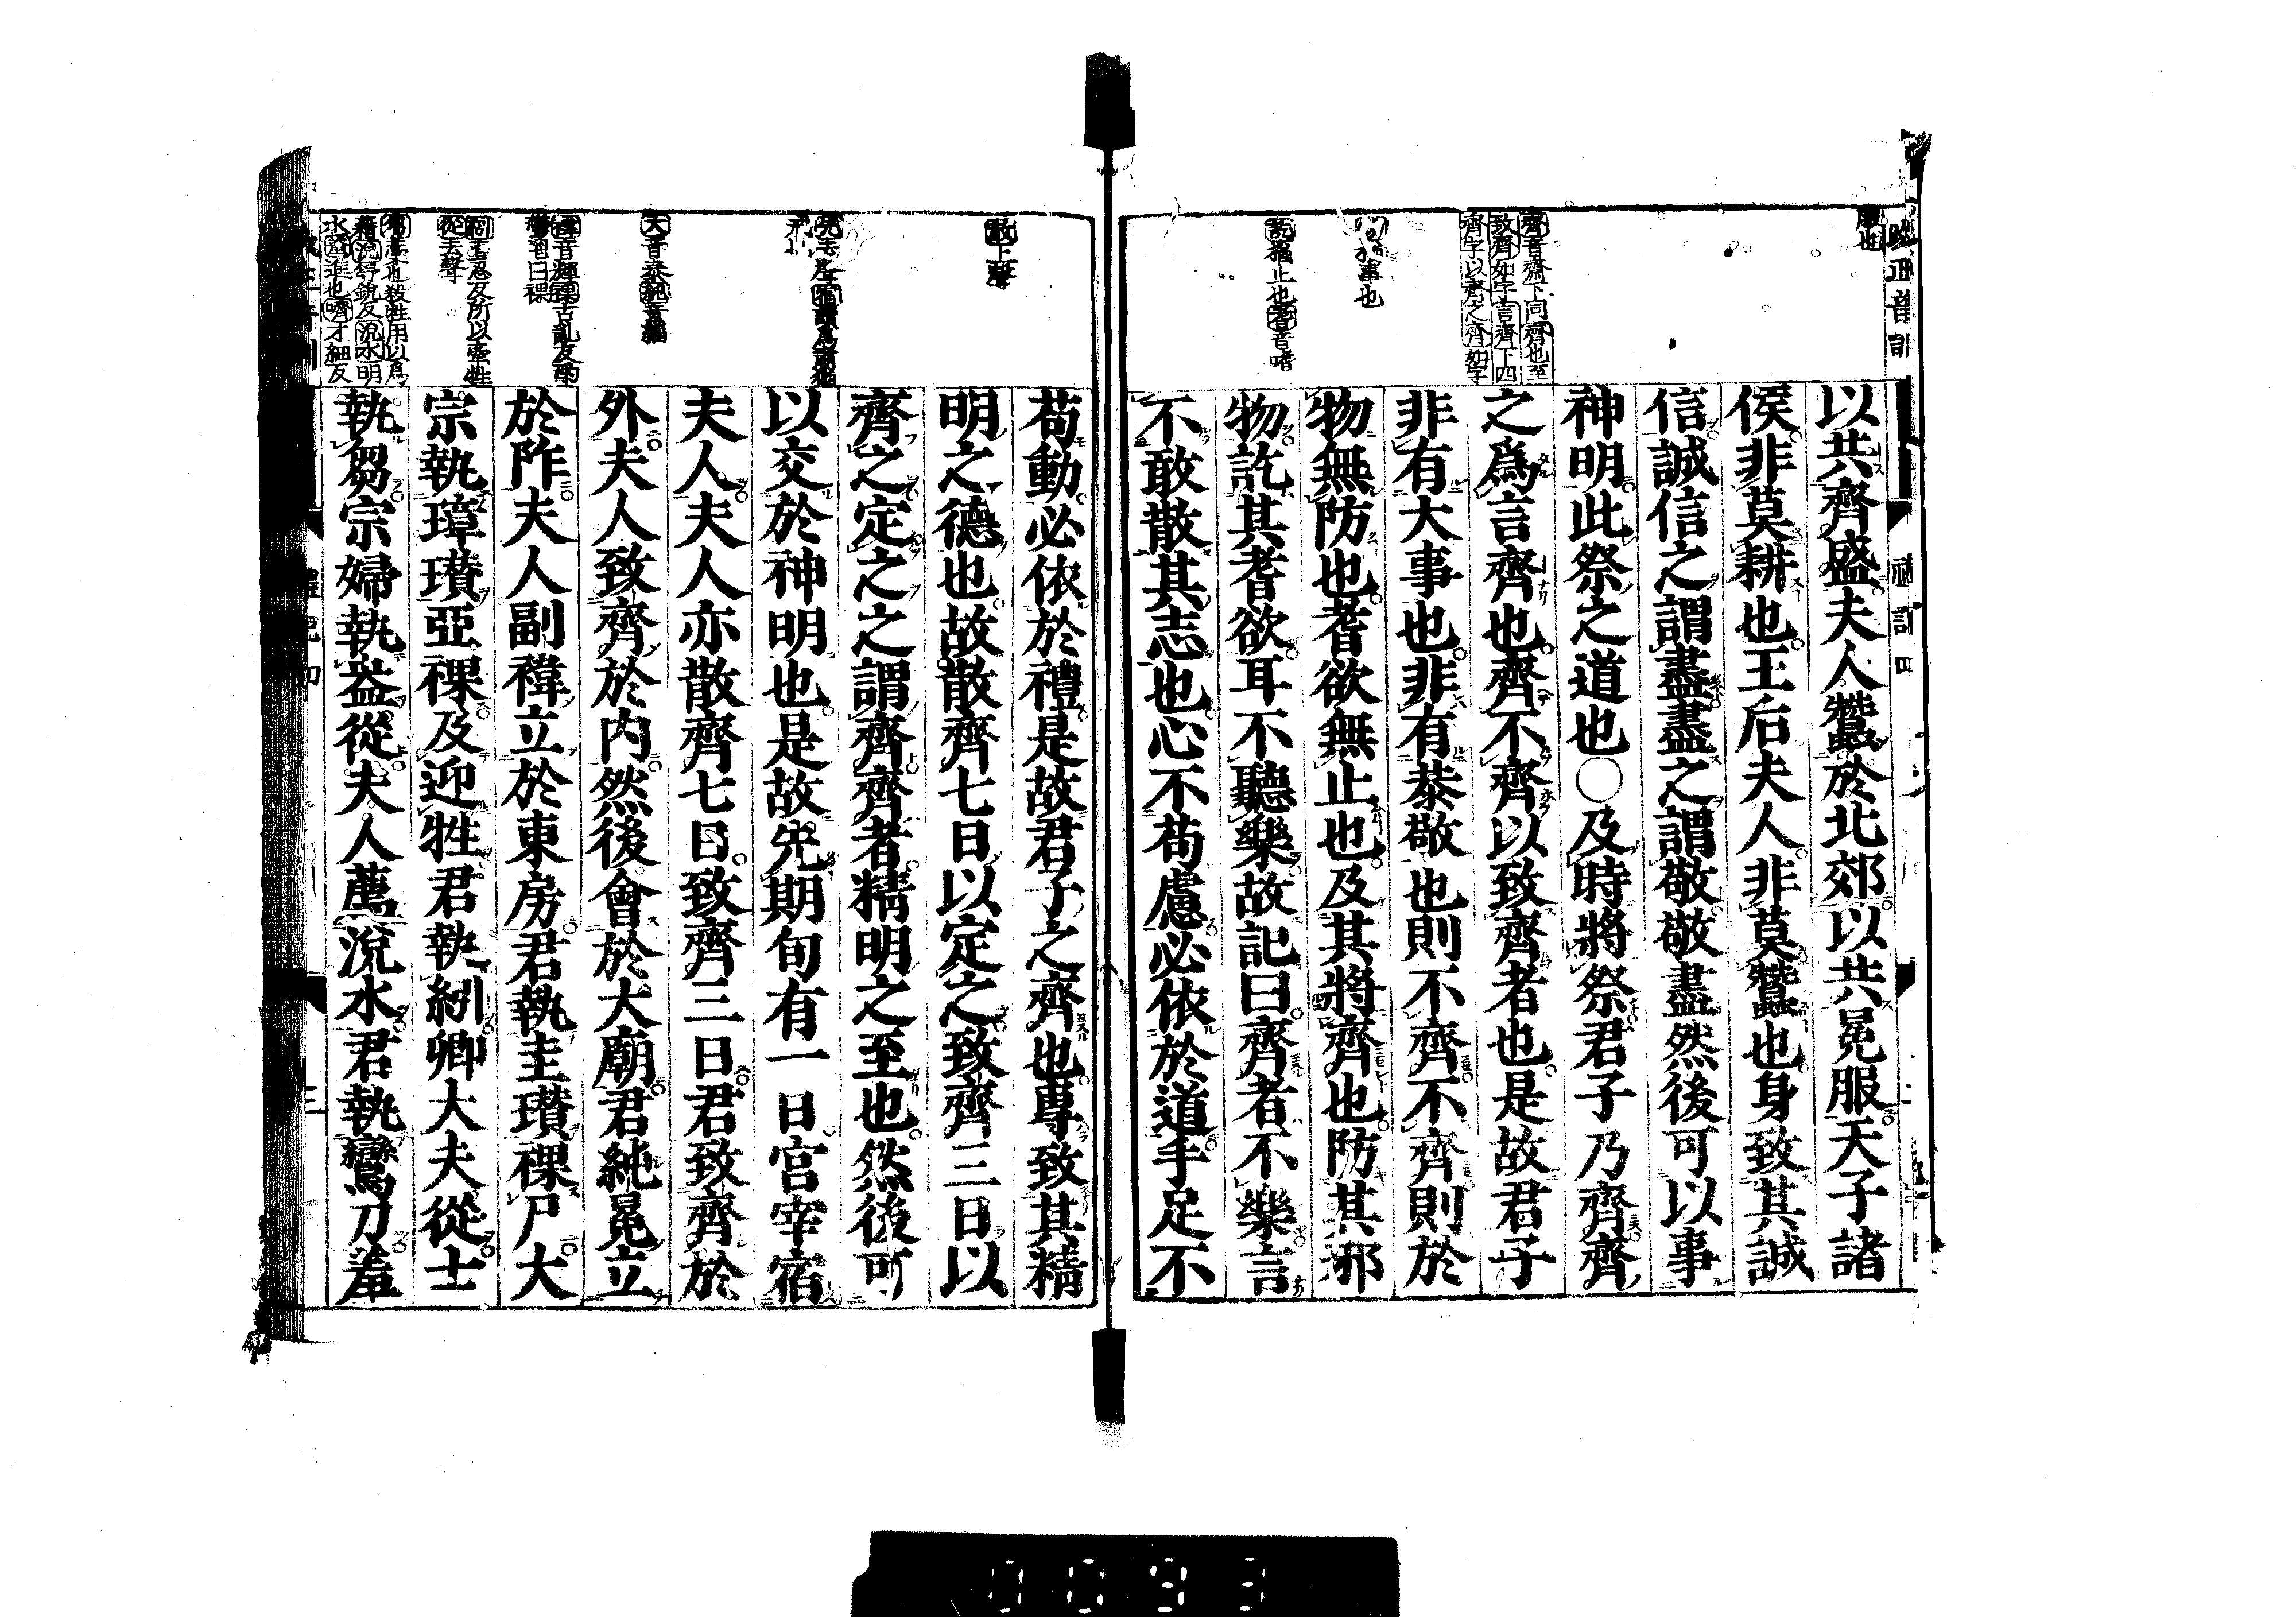 以共齊盛夫人蠶於北郊以共冕服天子諸
侯非莫耕也王后夫人非莫蠶也身致其誠
信誠信之謂盡盡之謂敬敬盡然後可以事
神明此祭之道也〇及時將祭君子乃齊齊
之爲言齊也齊不齊以致齊者也是故君子
非有大事也非有恭敬也則不齊不齊則於
物無防也耆欲無止也及其將齊也防其邪
物訖其耆欲耳不聽樂故記曰齊者不樂言
不敢散其志也心不苟慮必依於道手足不
苟動必依於禮是故君子之齊也專致其精
明之德也故散齊七日以定之致齊三日以
齊之定之之謂齊齊者精明之至也然後可
以交於神明也是故先期旬有一日宮宰宿
夫人夫人亦散齊七日致齊三日君致齊於
外夫人致齊於内然後會於大廟君純冕立
於阼夫人副褘立於東房君執圭瓚祼尸大
宗執璋瓚亞祼及迎牲君執紖卿大夫從士
執芻宗婦執盎從夫人薦涗水君執鸞刀羞
齊音齋下同齊也至
致齊如字言齊下四
齊字以齊之齊如字
訖猶止也耆音嗜
散上聲
大音泰純音緇
從去聲